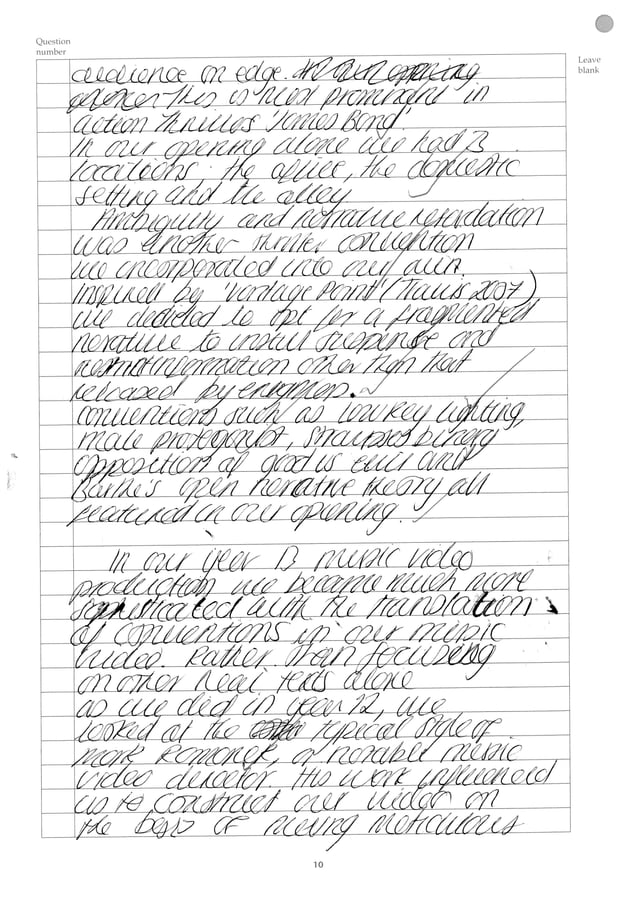 Question
number
Leave
blank
audience on edge. In our opening
This is most prominent in
action thrillers 'James Bond'.
In our opening alone we had 3
locations: the office, the domestic
setting and the alley
Ambiguity and narrative retardation
was another thriller convention
we incorporated into our own.
Inspired by 'Vantage Point' (Travis 2007)
we decided to opt for a fragmented
narative to install suspense and
restrict information other than that
released by enigmas.
Conventions such as low key lighting,
male protagonist, Strauss's binary
opposition of good vs evil and
Barthe's open narative theory all
featured in our opening.
In our year 13 music video
production, we became much more
sophisticated with the translation
of conventions in our music
video. Rather than focusing
on other real texts alone
as we did in year 12, we
looked at the typical style of
Mark Romanek, a notable music
video director. His work influenced
us to construct our video on
the basis of having meticulous
10